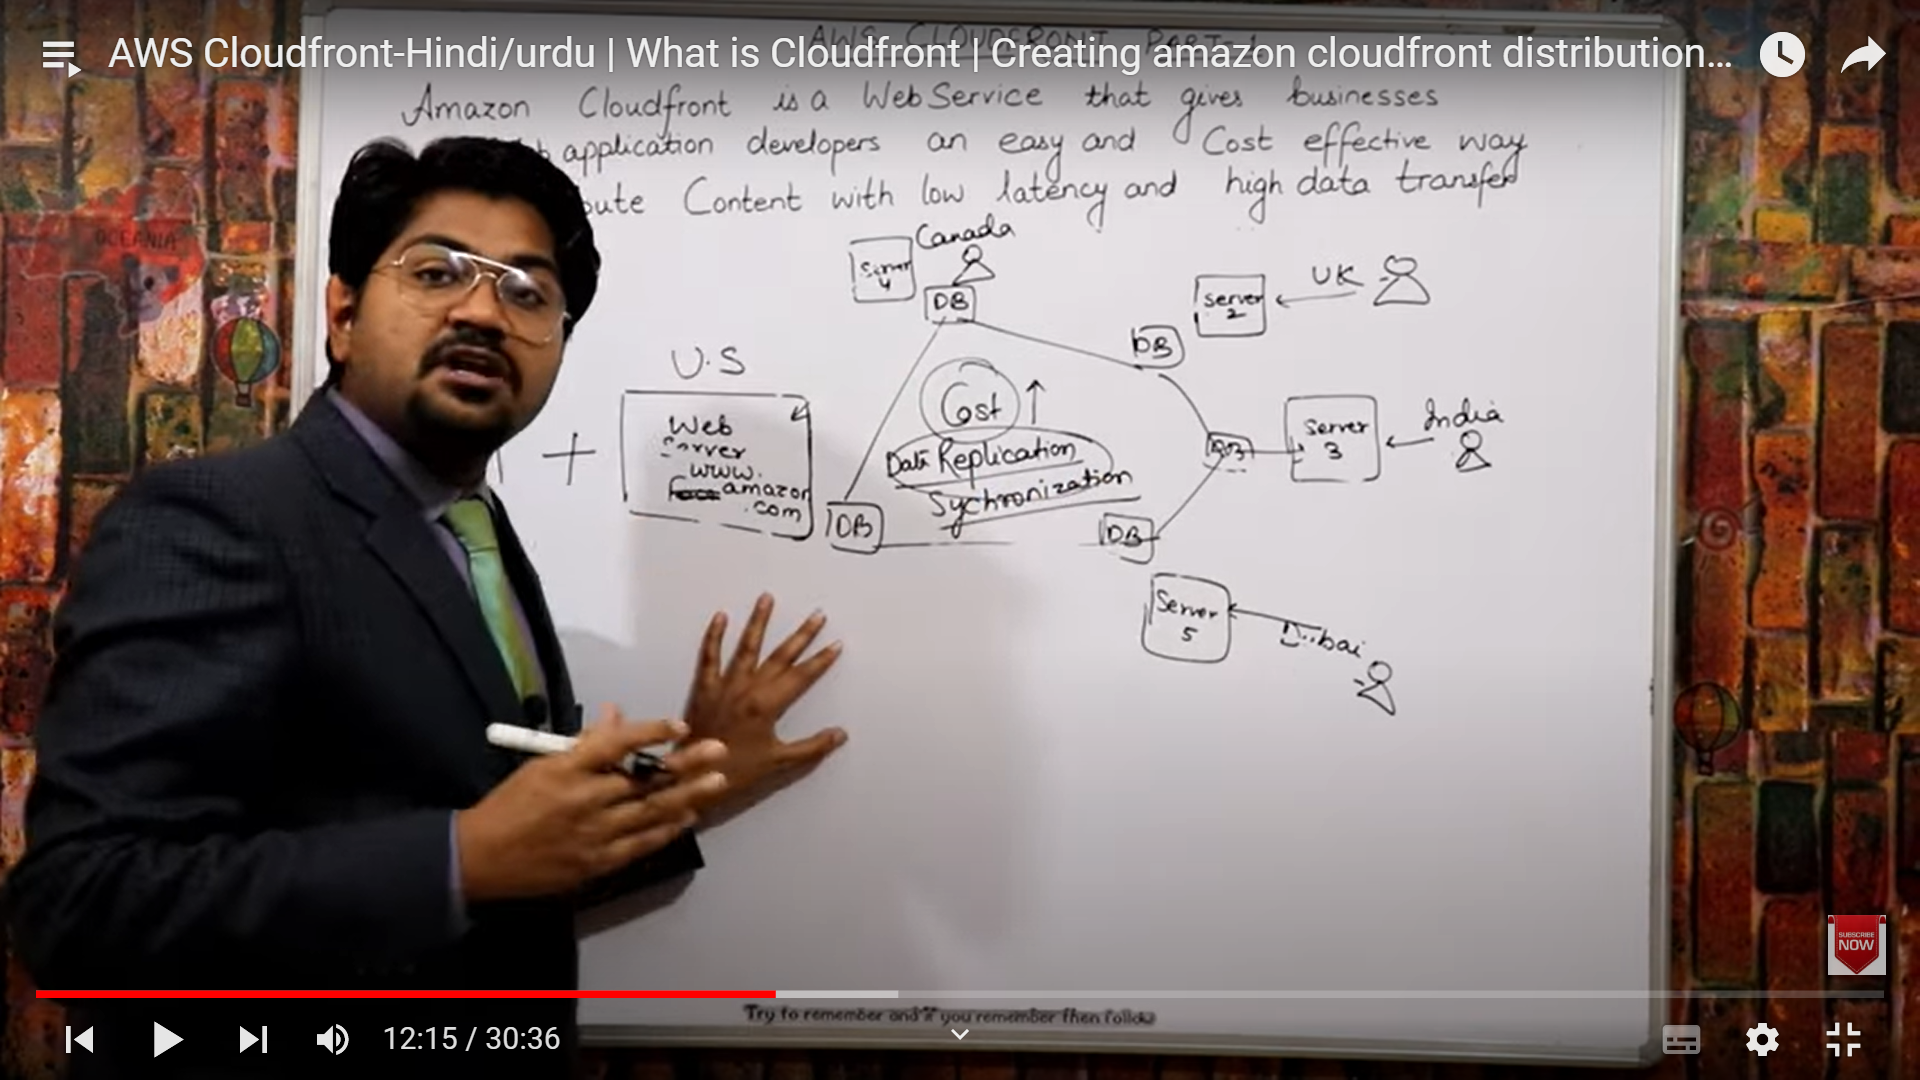 AWS Cloudfront-Hindi/urdu | What is Cloudfront | Creating amazon cloudfront distribution...
AWS CLOUDFRONT PART-1
Amazon Cloudfront is a Web Service that gives businesses
application developers an easy and Cost effective way
bute Content with low latency and high data transfer
OCEANIA
Canada
Server
4
DB
UK
Server
2
DB
U.S
Web
Server
www.
amazon
.com
+
Cost ↑
Data Replication
Sychronization
DB
DB
Server
3
India
DB
Server
5
Dubai
SUBSCRIBE
NOW
Try to remember and if you remember then follow
12:15 / 30:36